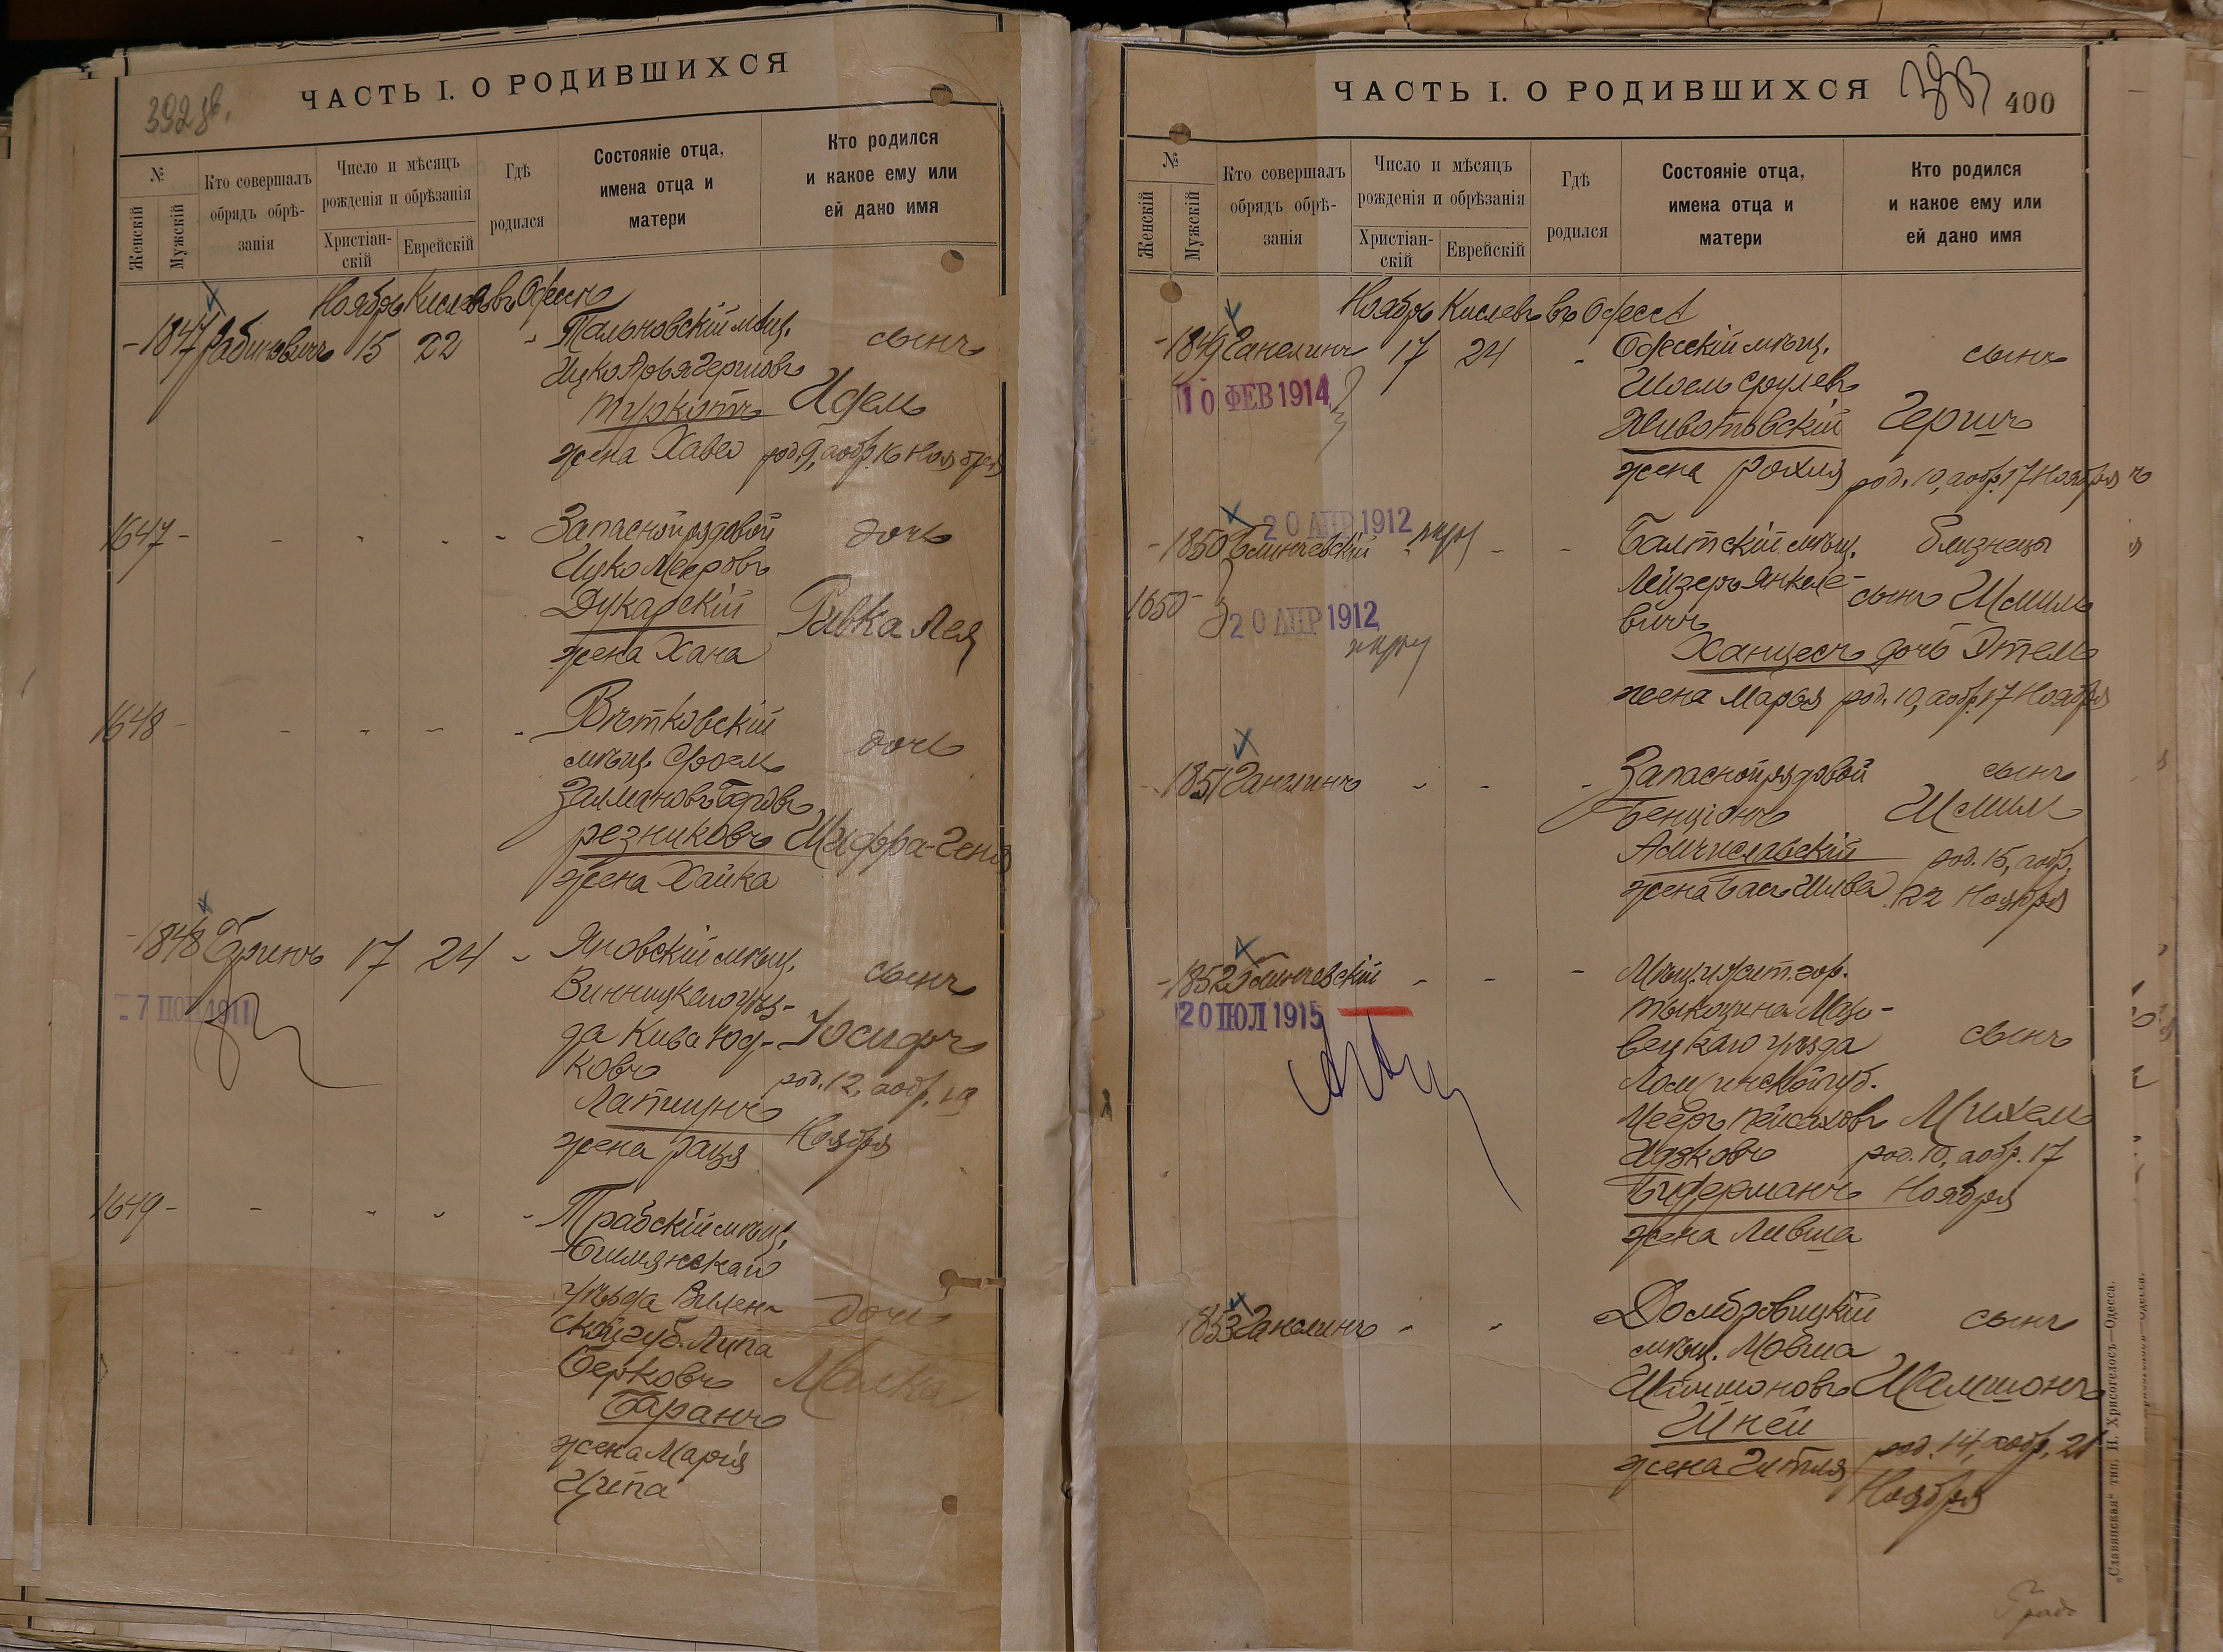 392 об.
ЧАСТЬ I. О РОДИВШИХСЯ
№
Женскій
Мужскій
Кто совершалъ
обрядъ обрѣ-
занія
Число и мѣсяцъ
рожденія и обрѣзанія
Христіан-
скій
Еврейскій
Гдѣ
родился
Состояніе отца,
имена отца и
матери
Кто родился
и какое ему или
ей дано имя
Ноябрь Кислевъ въ Одессѣ
- 1847 Рабиновичъ 15 22 - Тальновскій мѣщ. сынъ
Ицко Арья Гершовъ
Туркотъ Идель
жена Хава род. 9, а обр. 16 Ноября
1647 - - - - - Запасной рядовой дочь
Ицко Мееровъ
Дукарскій Ривка Лея
жена Хана
1648 - - - - - Вѣтковскій
мѣщ. Сроль дочь
Залмановъ Беровъ
Резниковъ Шифра-Геня
жена Хайка
- 1848 Бринъ 17 24 - Яновскій мѣщ. сынъ
Винницкаго уѣз-
да Кива Юд- Іосифъ
ковъ род. 12, а обр. 19
Лапшунъ Ноября
жена Рася
1649 - - - - - Трабскій мѣщ.
Ошмянскаго
уѣзда Вилен- дочь
ской губ. Липа
Берковъ Малка
Баранъ
жена Марія
Ципа
ЧАСТЬ I. О РОДИВШИХСЯ
400
№
Женскій
Мужскій
Кто совершалъ
обрядъ обрѣ-
занія
Число и мѣсяцъ
рожденія и обрѣзанія
Христіан-
скій
Еврейскій
Гдѣ
родился
Состояніе отца,
имена отца и
матери
Кто родился
и какое ему или
ей дано имя
Ноябрь Кислевъ въ Одессѣ
- 1849 Ганелинъ 17 24 - Одесскій мѣщ. сынъ
10 ФЕВ 1914
Шоель Срулевъ
Животовскій Гершъ
жена Рохля род. 10, а обр. 17 Ноября
20 АПР 1912
- 1850 Блинчевскій - - Балтскій мѣщ. близнецы
1650 - Лейзеръ Янкеле- сынъ Шмиль
20 АПР 1912
вичъ
Ханцесъ дочь Этель
жена Марья род. 10, а обр. 17 Ноября
- 1851 Ганелинъ - - - Запасной рядовой сынъ
Бенціонъ Шмиль
Амчиславскій род. 15, а обр.
жена Бася Шива 22 Ноября
- 1852 Блинчевскій - - - Мѣщ. и жит. гор.
20 ІЮЛ 1915
Тыкоцина Мазо-
вецкаго уѣзда сынъ
Ломжинской губ.
Мееръ Пейсаховъ Михель
Ицковъ род. 10, а обр. 17
Бидерманъ Ноября
жена Ливша
1853 Ганелинъ - - Домбровицкій сынъ
мѣщ. Мовша
Шимшоновъ Шамшонъ
Шней
жена Гитля род. 14, а обр. 21
Ноября
„Славянская“ тип. Н. Хрисогелосъ—Одесса.